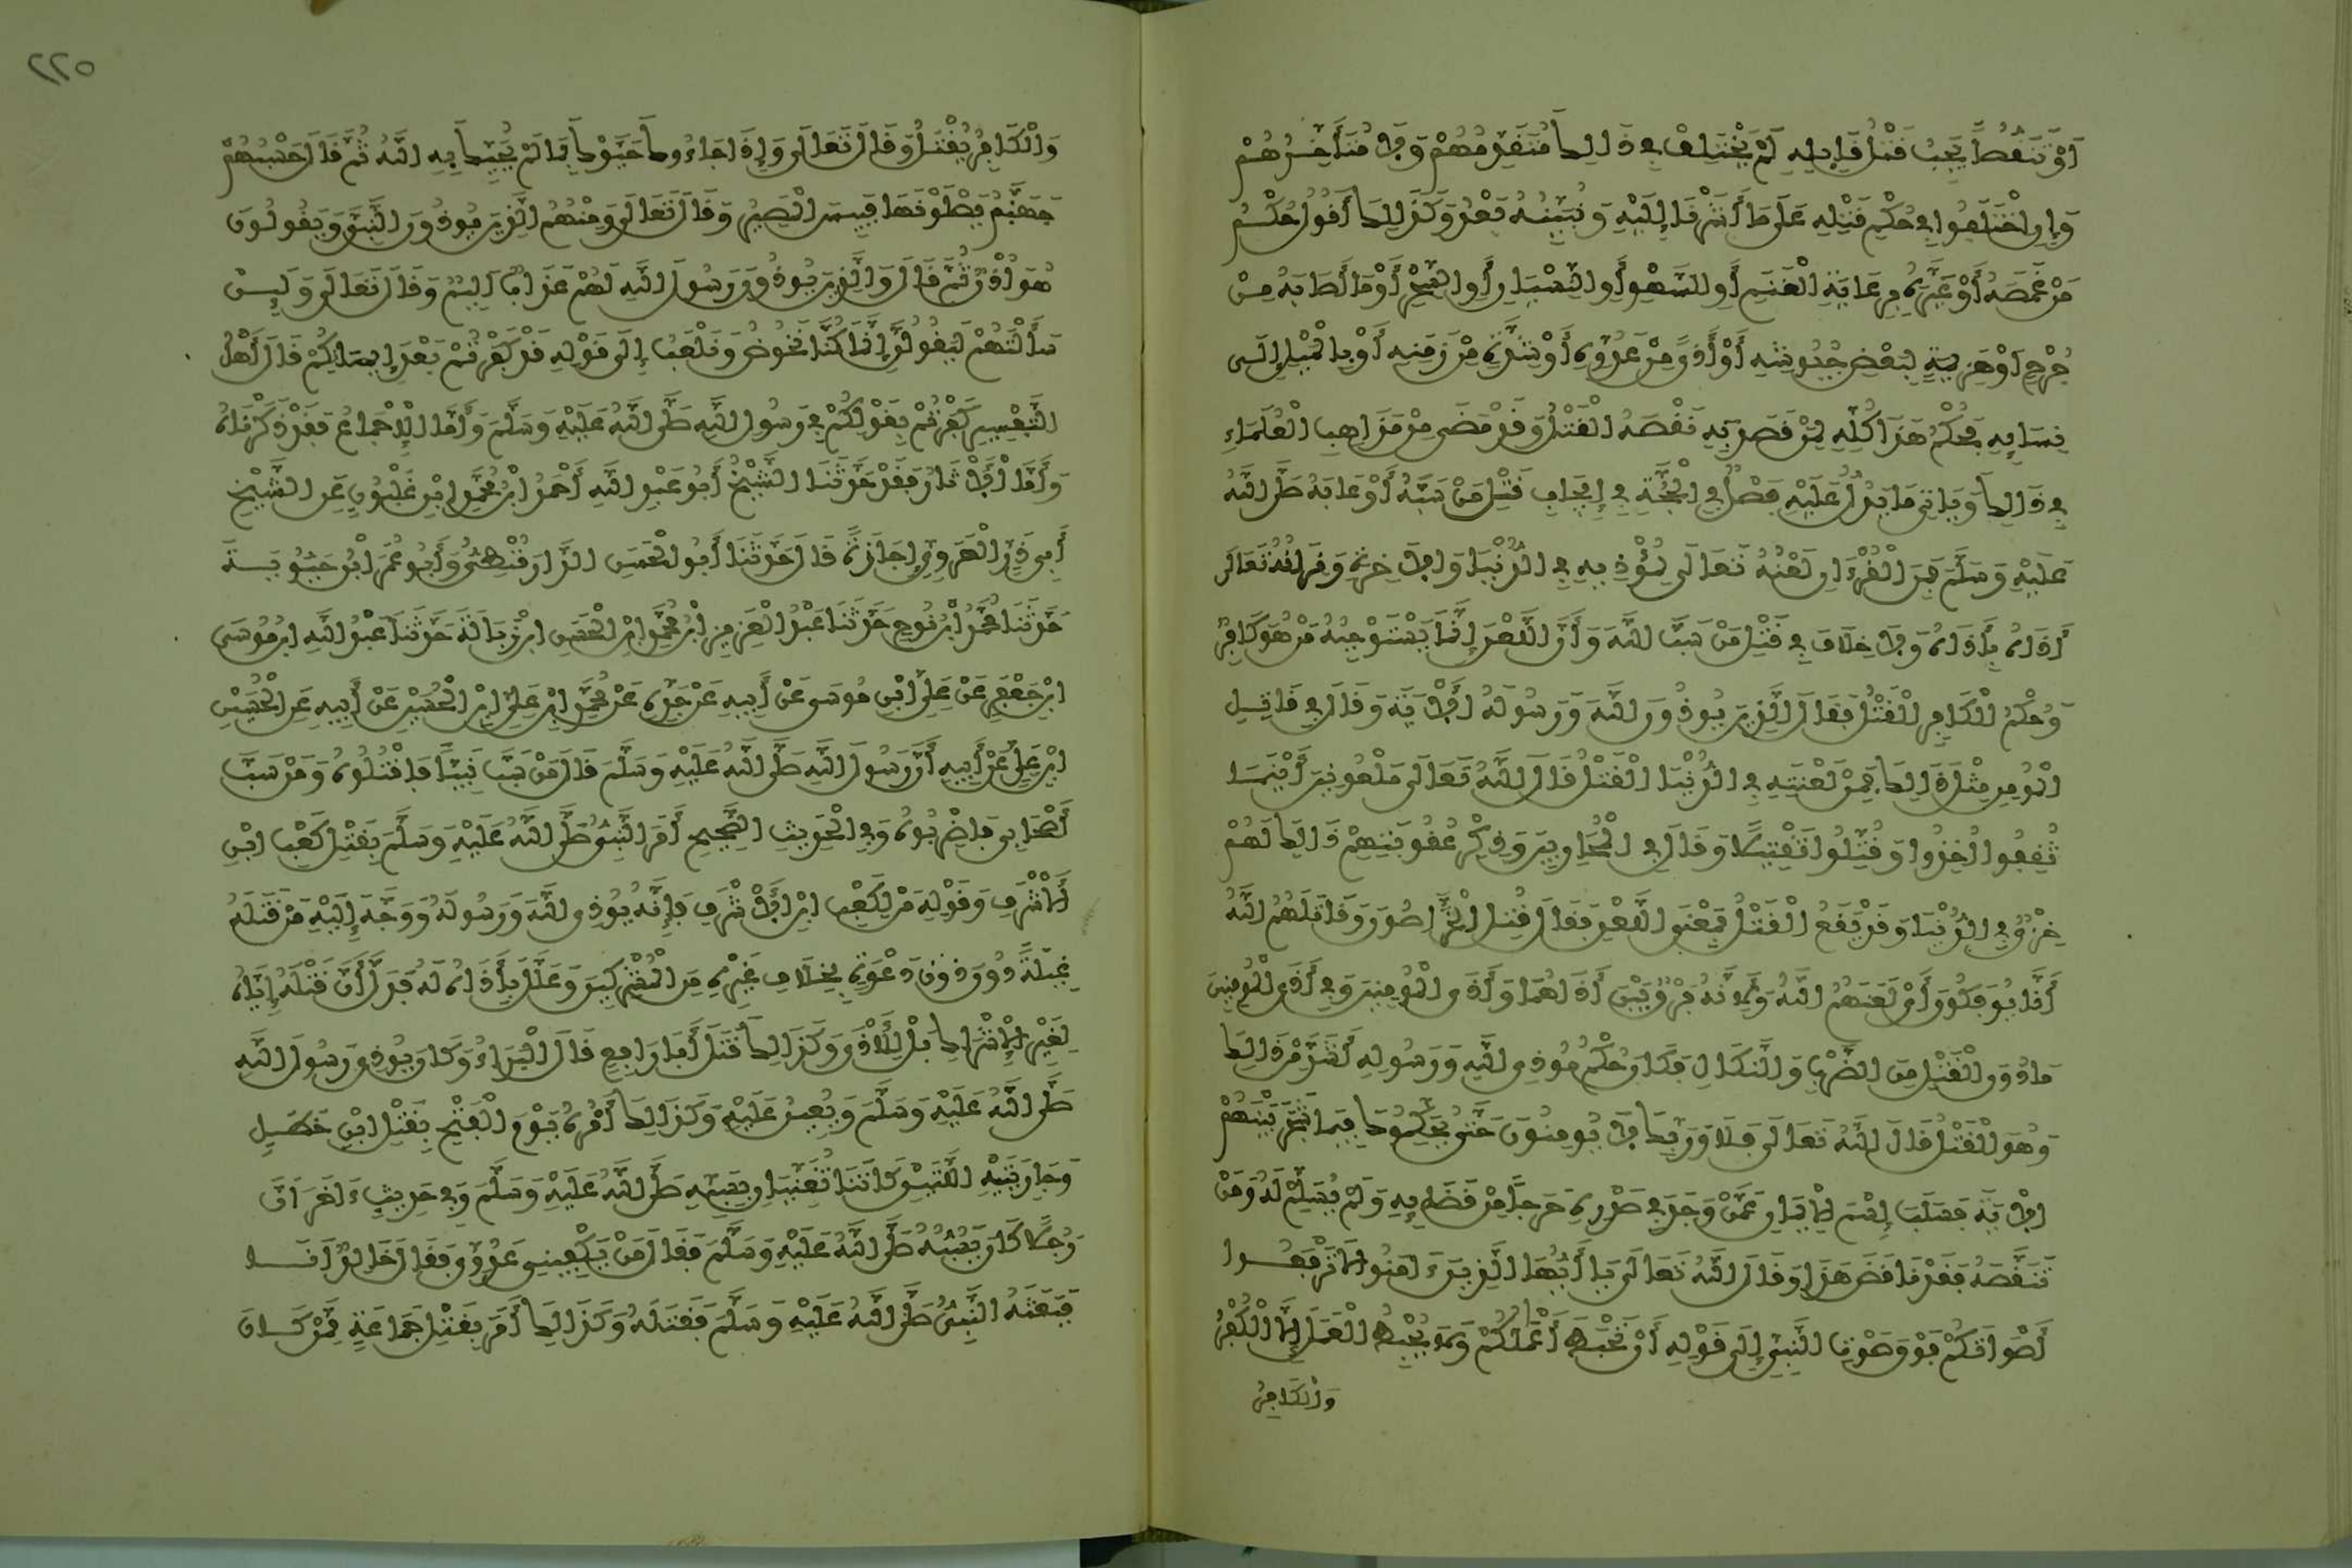 أَوْ تَنَقُّصًا يَجِبُ قَتْلُ قَايِلِهِ لَمْ يَخْتَلِفْ فِي ذَالِكَ مُتَقَدِّمُهُمْ وَلَا مُتَأَخِّرُهُمْ
وَإِنِ اخْتَلَفُوا فِي حُكْمِ قَتْلِهِ عَلَى مَا أَشَرْنَا إِلَيْهِ وَنُبَيِّنُهُ بَعْدُ وَكَذَالِكَ أَقُولُ حُكْمُ
مَنْ غَمَصَهُ أَوْ عَيَّرَهُ بِرِعَايَةِ الْغَنَمِ أَوِ السَّهْوِ أَوِ النِّسْيَانِ أَوِ السِّحْرِ أَوْ مَا أَصَابَهُ مِنْ
جُرْحٍ أَوْ هَزِيمَةٍ لِبَعْضِ جُيُوشِهِ أَوْ أَذًى مِنْ عَدُوِّهِ أَوْ شِدَّةٍ مِنْ زَمَنِهِ أَوْ بِالْمَيْلِ إِلَى
نِسَايِهِ فَحُكْمُ هَذَا كُلِّهِ لِمَنْ قَصَدَ بِهِ نَقْصَهُ الْقَتْلُ وَقَدْ مَضَى مِنْ مَذَاهِبِ الْعُلَمَاءِ
فِي ذَالِكَ وَيَاتِي مَا يَدُلُّ عَلَيْهِ فَصْلٌ فِي الْحُجَّةِ فِي إِيجَابِ قَتْلِ مَنْ سَبَّهُ أَوْ عَابَهُ صَلَّى اللَّهُ
عَلَيْهِ وَسَلَّمَ فَمِنَ الْقُرْءَانِ لَعْنُهُ تَعَالَى لِمُؤْذِيهِ فِي الدُّنْيَا وَالَاخِرَةِ وَقِرَانُهُ تَعَالَى
أَذَاهُ بِأَذَاهُ وَلَا خِلَافَ فِي قَتْلِ مَنْ سَبَّ اللَّهَ وَأَنَّ اللَّعْنَ إِنَّمَا يَسْتَوْجِبُهُ مَنْ هُوَ كَافِرٌ
وَحُكْمُ الْكَافِرِ الْقَتْلُ فَقَالَ الَّذِينَ يُوذُونَ اللَّهَ وَرَسُولَهُ الَايَةَ وَقَالَ فِي قَاتِلِ
الْمُومِنِ مِثْلَ ذَالِكَ فَمِنْ لَعْنَتِهِ فِي الدُّنْيَا الْقَتْلُ قَالَ اللَّهُ تَعَالَى مَلْعُونِينَ أَيْنَمَا
ثُقِفُوا أُخِذُوا وَقُتِّلُوا تَقْتِيلًا وَقَالَ فِي الْمُحَارِبِينَ وَذِكْرِ عُقُوبَتِهِمْ ذَالِكَ لَهُمْ
خِزْيٌ فِي الدُّنْيَا وَقَدْ يَقَعُ الْقَتْلُ بِمَعْنَى اللَّعْنِ فَقَالَ قُتِلَ الْخَرَّاصُونَ وَقَاتَلَهُمُ اللَّهُ
أَنَّى يُوفَكُونَ أَيْ لَعَنَهُمُ اللَّهُ وَلِأَنَّهُ فَرْقٌ بَيْنَ أَذَاهُمَا وَأَذَى الْمُومِنِينَ وَفِي أَذَى الْمُومِنِينَ
مَا دُونَ الْقَتْلِ مِنَ الضَّرْبِ وَالنَّكَالِ فَكَانَ حُكْمُ مُوذِي اللَّهِ وَرَسُولِهِ أَشَدَّ مِنْ ذَالِكَ
وَهُوَ الْقَتْلُ قَالَ اللَّهُ تَعَالَى فَلَا وَرَبِّكَ لَا يُومِنُونَ حَتَّى يُحَكِّمُوكَ فِيمَا شَجَرَ بَيْنَهُمْ
الَايَةَ فَسَلَبَ اسْمَ الْإِيمَانِ عَمَّنْ وَجَدَ فِي صَدْرِهِ حَرَجًا مِنْ قَضَايِهِ وَلَمْ يُسَلِّمْ لَهُ وَمَنْ
تَنَقَّصَهُ فَقَدْ نَاقَضَ هَذَا وَقَالَ اللَّهُ تَعَالَى يَا أَيُّهَا الَّذِينَ ءَامَنُوا لَا تَرْفَعُوا
أَصْوَاتَكُمْ فَوْقَ صَوْتِ النَّبِيءِ إِلَى قَوْلِهِ أَنْ تَحْبَطَ أَعْمَالُكُمْ وَلَا يُحْبِطُ الْعَمَلَ إِلَّا الْكُفْرُ
وَالْكَافِرُ
٢٢٥
وَالْكَافِرُ يُقْتَلُ وَقَالَ تَعَالَى وَإِذَا جَاءُوكَ حَيَّوْكَ بِمَا لَمْ يُحَيِّكَ بِهِ اللَّهُ ثُمَّ قَالَ حَسْبُهُمْ
جَهَنَّمُ يَصْلَوْنَهَا فَبِيسَ الْمَصِيرُ وَقَالَ تَعَالَى وَمِنْهُمُ الَّذِينَ يُوذُونَ النَّبِيَّ وَيَقُولُونَ
هُوَ أُذْنٌ ثُمَّ قَالَ وَالَّذِينَ يُوذُونَ رَسُولَ اللَّهِ لَهُمْ عَذَابٌ اَلِيمٌ وَقَالَ تَعَالَى وَلَيِنْ
سَأَلْتَهُمْ لَيَقُولُنَّ إِنَّمَا كُنَّا نَخُوضُ وَنَلْعَبُ إِلَى قَوْلِهِ قَدْ كَفَرْتُمْ بَعْدَ إِيمَانِكُمْ قَالَ أَهْلُ
التَّفْسِيرِ كَفَرْتُمْ بِقَوْلِكُمْ فِي رَسُولِ اللَّهِ صَلَّى اللَّهُ عَلَيْهِ وَسَلَّمَ وَأَمَّا الْإِجْمَاعُ فَقَدْ ذَكَرْنَاهُ
وَأَمَّا الْأَثَارُ فَقَدْ حَدَّثَنَا الشَّيْخُ أَبُو عَبْدِ اللَّهِ أَحْمَدُ ابْنُ مُحَمَّدِ ابْنِ غَلْبُونٍ عَنِ الشَّيْخِ
أَبِي ذَرٍّ الْهَرَوِيِّ إِجَازَةً قَالَ حَدَّثَنَا أَبُو الْحَسَنِ الدَّارَقُطْنِيُّ وَأَبُو عُمَرَ ابْنُ حَيُّويَةَ
حَدَّثَنَا مُحَمَّدُ ابْنُ نُوحٍ حَدَّثَنَا عَبْدُ الْعَزِيزِ ابْنُ مُحَمَّدِ ابْنِ الْحَسَنِ ابْنِ زَبَالَةَ حَدَّثَنَا عَبْدُ اللَّهِ ابْنُ مُوسَى
ابْنِ جَعْفَرٍ عَنْ عَلِيِّ ابْنِ مُوسَى عَنْ أَبِيهِ عَنْ جَدِّهِ عَنْ مُحَمَّدِ ابْنِ عَلِيِّ ابْنِ الْحُسَيْنِ عَنْ أَبِيهِ عَنِ الْحُسَيْنِ
ابْنِ عَلِيٍّ عَنْ أَبِيهِ أَنَّ رَسُولَ اللَّهِ صَلَّى اللَّهُ عَلَيْهِ وَسَلَّمَ قَالَ مَنْ سَبَّ نَبِيًّا فَاقْتُلُوهُ وَمَنْ سَبَّ
أَصْحَابِي فَاضْرِبُوهُ وَفِي الْحَدِيثِ الصَّحِيحِ أَمَرَ النَّبِيُّ صَلَّى اللَّهُ عَلَيْهِ وَسَلَّمَ بِقَتْلِ كَعْبِ ابْنِ
الْأَشْرَفِ وَقَوْلِهِ مَنْ لِكَعْبِ ابْنِ الْأَشْرَفِ فَإِنَّهُ يُوذِي اللَّهَ وَرَسُولَهُ وَوَجَّهَ إِلَيْهِ مَنْ قَتَلَهُ
غِيلَةً دُونَ دَعْوَةٍ بِخِلَافِ غَيْرِهِ مِنَ الْمُشْرِكِينَ وَعَلَّلَ بِأَذَاهُ لَهُ فَدَلَّ أَنَّ قَتْلَهُ إِيَّاهُ
لِغَيْرِ الْإِشْرَاكِ بَلْ لِلْأَذَى وَكَذَالِكَ قَتَلَ أَبَا رَافِعٍ قَالَ الْبَرَاءُ وَكَانَ يُوذِي رَسُولَ اللَّهِ
صَلَّى اللَّهُ عَلَيْهِ وَسَلَّمَ وَيُعِينُ عَلَيْهِ وَكَذَالِكَ أَمْرُهُ يَوْمَ الْفَتْحِ بِقَتْلِ ابْنِ خَطَلٍ
وَجَارِيَتَيْهِ اللَّتَيْنِ كَانَتَا تُغَنِّيَانِ بِسَبِّهِ صَلَّى اللَّهُ عَلَيْهِ وَسَلَّمَ وَفِي حَدِيثٍ ءَاخَرَ أَنَّ
رَجُلًا كَانَ يَسُبُّهُ صَلَّى اللَّهُ عَلَيْهِ وَسَلَّمَ فَقَالَ مَنْ يَكْفِينِي عَدُوِّي فَقَالَ خَالِدٌ أَنَا
فَبَعَثَهُ النَّبِيُّ صَلَّى اللَّهُ عَلَيْهِ وَسَلَّمَ فَقَتَلَهُ وَكَذَالِكَ أَمَرَ بِقَتْلِ جَمَاعَةٍ مِمَّنْ كَانَ